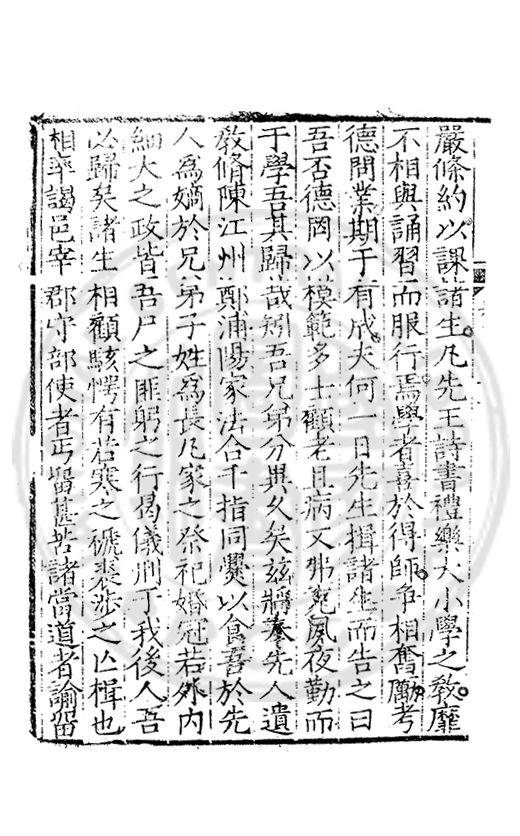 嚴條約以課諸生凡先王詩書禮樂大小學之敎靡
不相與誦習而服行焉學者喜於得師爭相奮勵考
德問業期于有成夫何一日先生揖諸生而告之曰
吾否德罔以模範多士顧老且病又弗克夙夜勤而
于學吾其歸哉矧吾兄弟分異久矣玆將奉先人遺
敎脩陳江州鄭浦陽家法合千指同爨以食吾於先
人爲嫡於兄弟子姓爲長凡家之祭祀婚冠若外内
細大之政皆吾尸之匪躬之行曷儀刑于我後人吾
以歸矣諸生相顧駭愕有若寒之禠裘涉之亾楫也
相率謁邑宰郡守部使者丐留甚苦諸當道者諭留